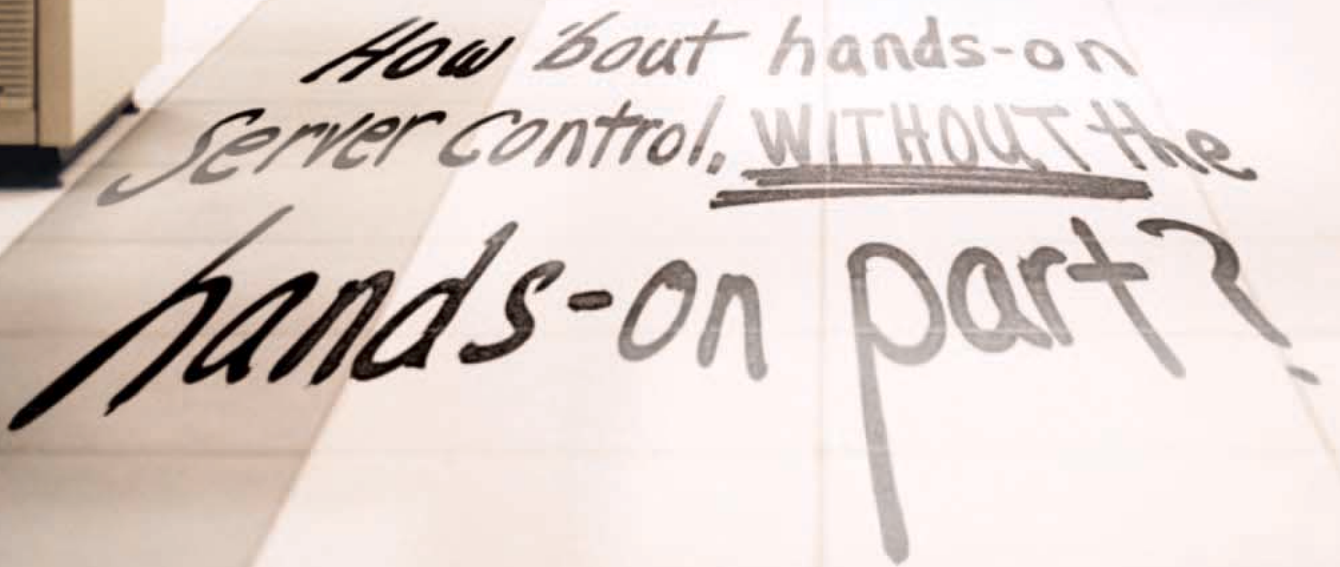 How 'bout hands-on
Server control, WITHOUT the
hands-on part?